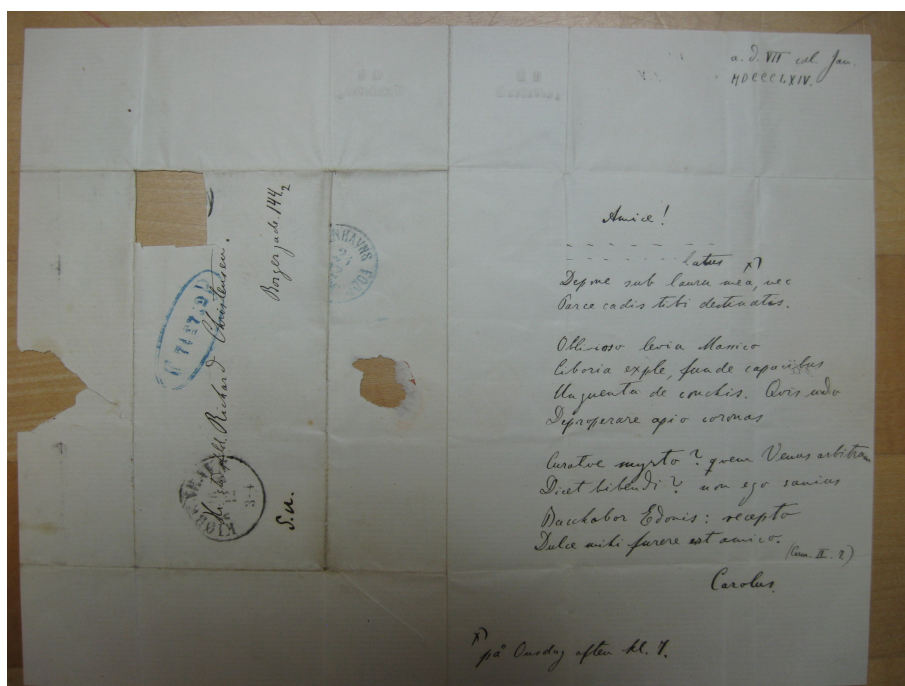 a. d. VII cal Jan.
MDCCCLXIV.
Amice!
latus x)
Depone sub lauru mea, nec
Parce cadis tibi destinatis.
Oblivioso levia Massico
Ciboria exple, funde capacibus
Unguenta de conchis. Qvis udo
Deproperare apio coronas
Curatve myrto? qvem Venus arbitrum
Dicet bibendi? non ego sanius
Bacchabor Edonis: recepto
Dulce mihi furere est amico.
(Carm. II. 7)
Carolus.
x)
på Onsdag aften kl. 7.
Richard Christensen.
Borgergade. 144
2
S. u.
3-4